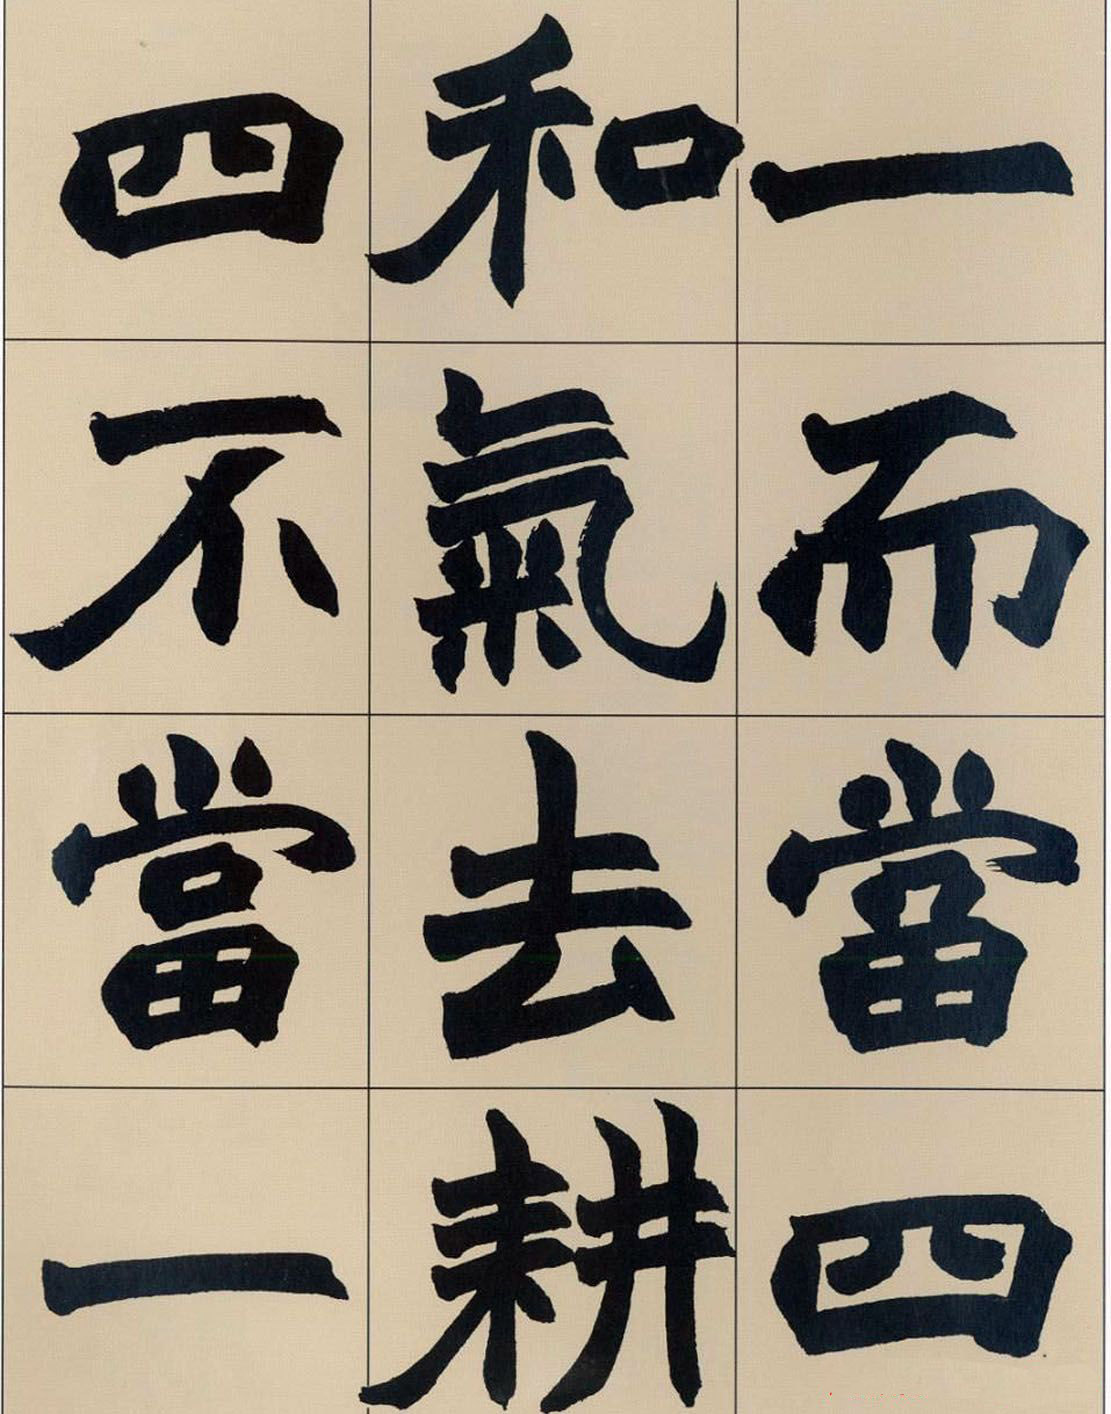 一而當四
和氣去耕
四不當一